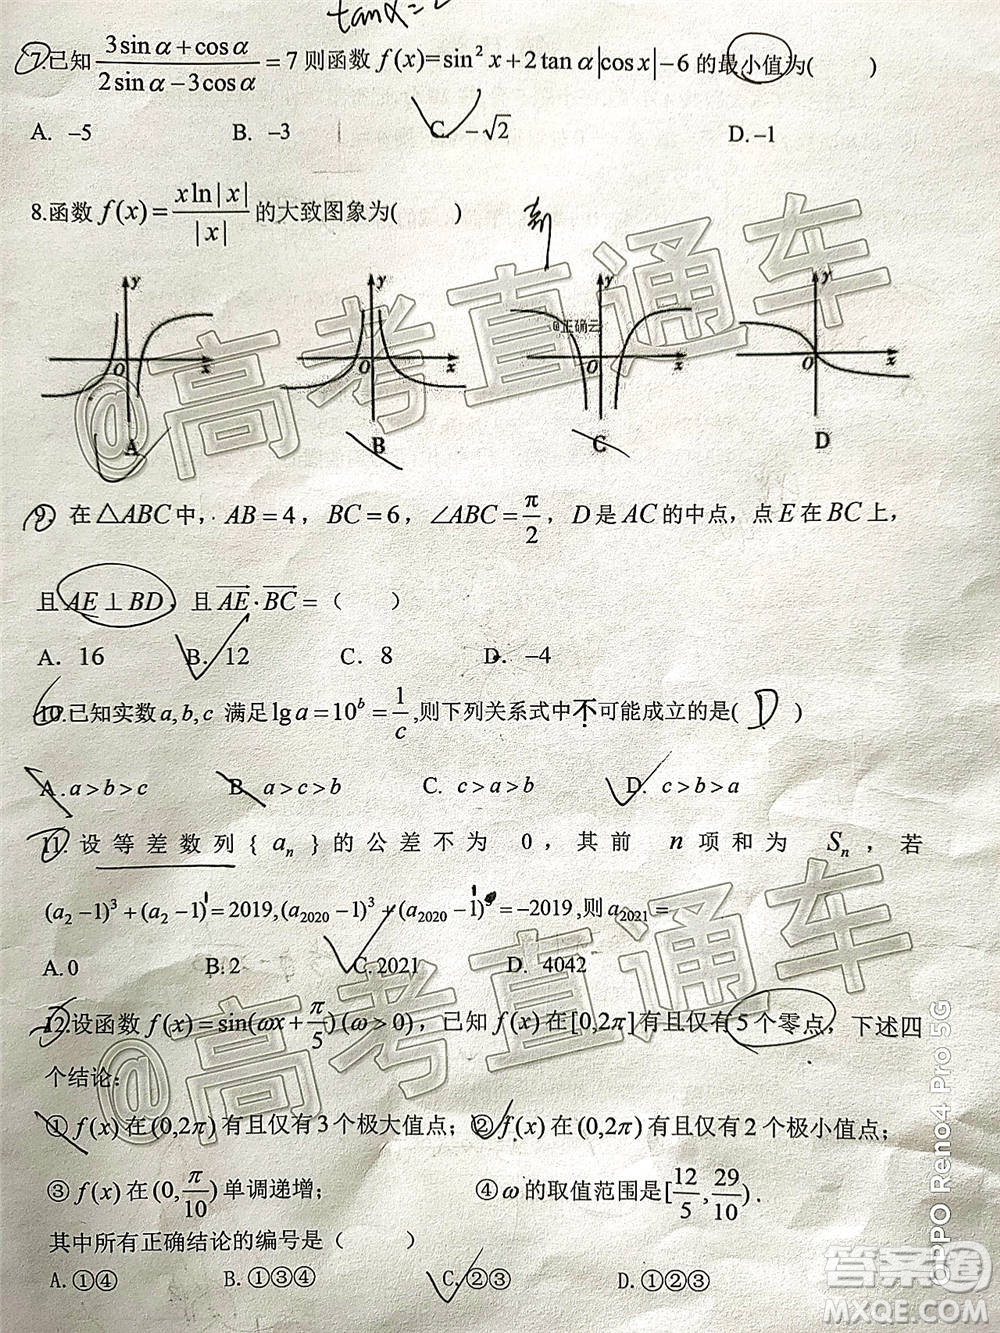 tanα=2
7.已知 (3sinα+cosα)/(2sinα−3cosα)=7则函数 f(x)=sin²x+2tanα|cosx|−6 的最小值为(    )
A. −5    B. −3    C. −√2    D.−1
8.函数 f(x)=xln|x|/|x| 的大致图象为(    )
y y y y
@正确云
O x O x O x O x
A B C D
9. 在△ABC中, AB=4, BC=6, ∠ABC=π/2, D是AC的中点, 点E在BC上,
且AE⊥BD, 且AE·BC=(    )
A. 16    B. 12    C. 8    D. −4
10.已知实数a,b,c 满足lga=10^b=1/c,则下列关系式中不可能成立的是( D )
A.a>b>c    B. a>c>b    C. c>a>b    D. c>b>a
11. 设等差数列{a_n}的公差不为0, 其前n项和为S_n, 若
(a₂−1)³+(a₂−1)¹=2019,(a₂₀₂₀−1)³+(a₂₀₂₀−1)¹=−2019,则a₂₀₂₁=
A.0    B.2    C.2021    D. 4042
12.设函数 f(x)=sin(ωx+π/5)(ω>0), 已知 f(x)在[0,2π]有且仅有5个零点, 下述四
个结论:
①f(x)在(0,2π)有且仅有3个极大值点; ②f(x)在(0,2π)有且仅有2个极小值点;
③f(x)在(0,π/10)单调递增;    ④ω的取值范围是[12/5,29/10).
其中所有正确结论的编号是(    )
A.①④    B.①③④    C.②③    D.①②③
@高考直通车
@高考直通车
OPPO Reno4 Pro 5G
答案圈
MXQE.COM